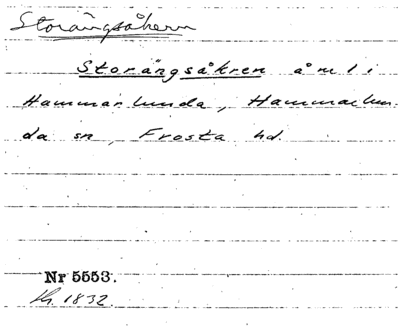 Storängsåkern
Storängsåkren åml i
Hammarlunda, Hammarlun-
da sn, Frosta hd.
Nr 5553.
Kh. 1832.